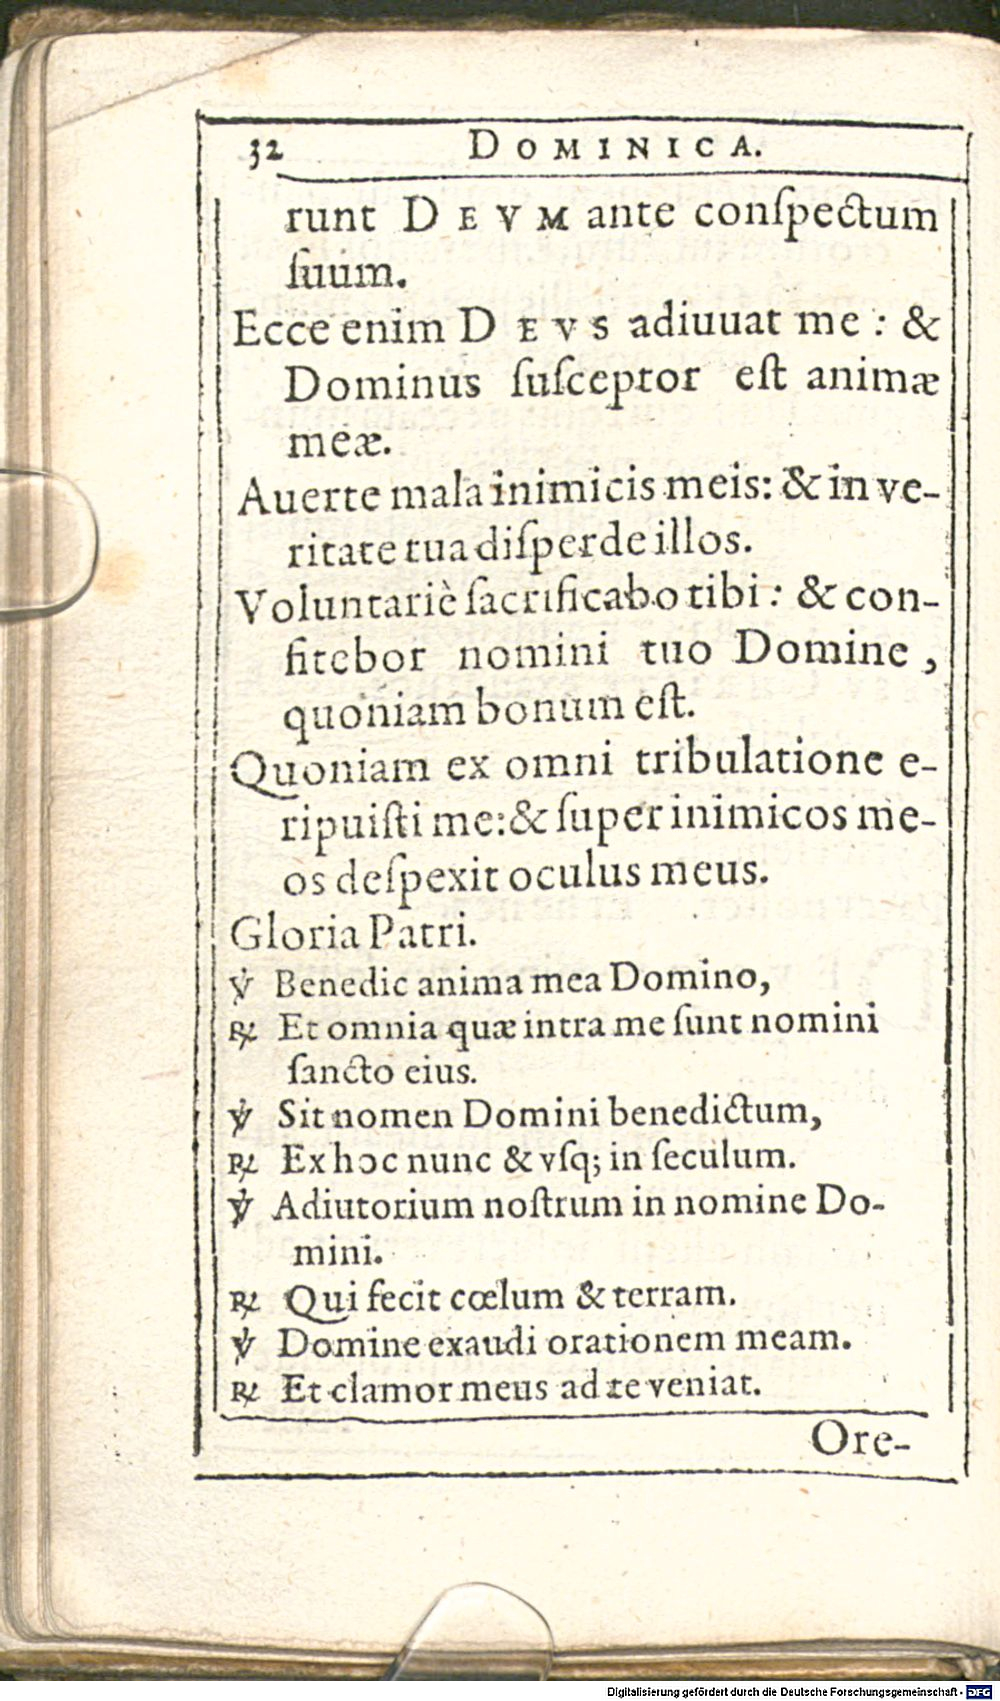 32 DOMINICA.
runt DEVM ante conſpectum
ſuum.
Ecce enim DEVS adiuuat me : &
Dominus ſuſceptor eſt animæ
meæ.
Auerte mala inimicis meis: & in ve-
ritate tua diſperde illos.
Voluntariè ſacrificabo tibi : & con-
fitebor nomini tuo Domine ,
quoniam bonum eſt.
Quoniam ex omni tribulatione e-
ripuiſti me: & ſuper inimicos me-
os deſpexit oculus meus.
Gloria Patri.
℣ Benedic anima mea Domino,
℟ Et omnia quæ intra me ſunt nomini
ſancto eius.
℣ Sit nomen Domini benedictum,
℟ Ex hoc nunc & vſq; in ſeculum.
℣ Adiutorium noſtrum in nomine Do-
mini.
℟ Qui fecit cœlum & terram.
℣ Domine exaudi orationem meam.
℟ Et clamor meus ad te veniat.
Ore-
Digitalisierung gefördert durch die Deutsche Forschungsgemeinschaft - DFG